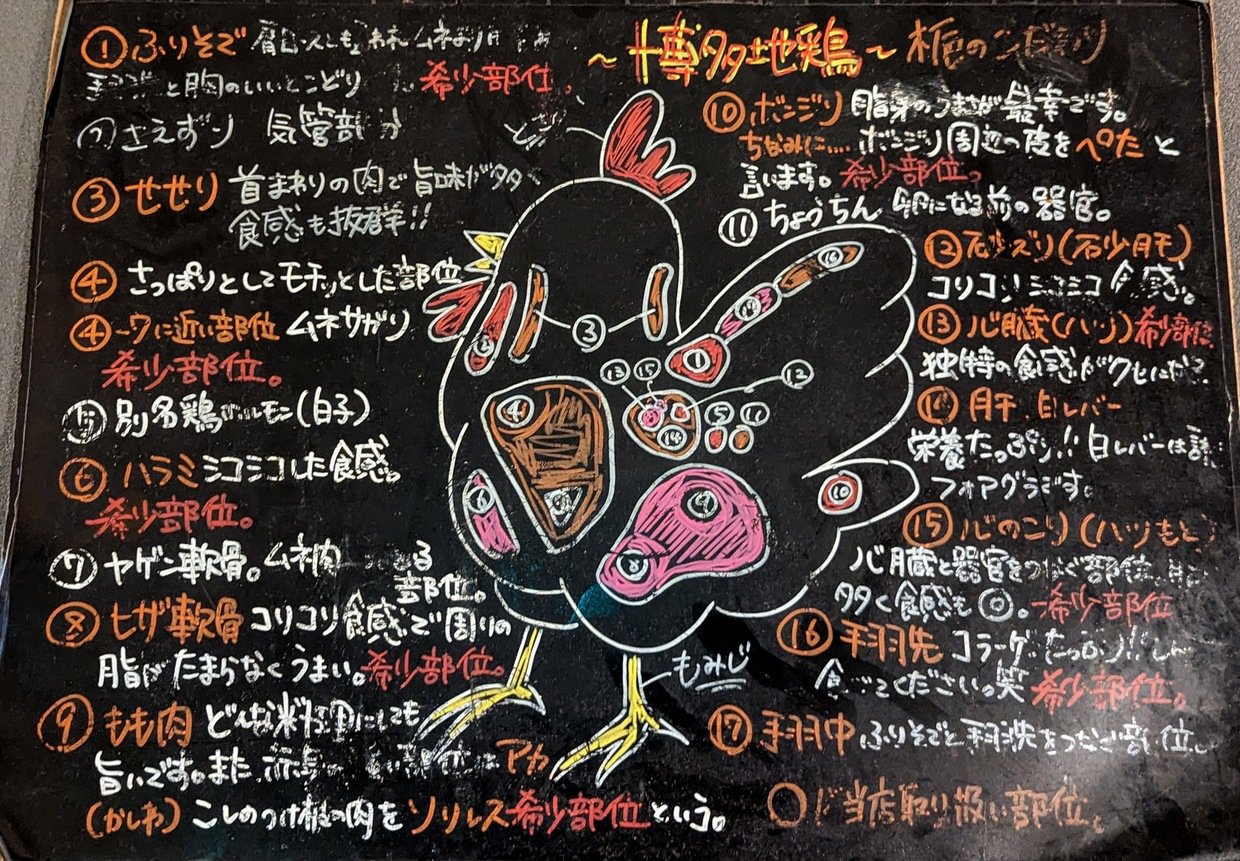 ～博多地鶏～ 栃のこだわり
① ふりそで 肩ロースとも
手羽先と胸のいいとこどり 希少部位。
② さえずり 気管部分
③ せせり 首まわりの肉で旨味が多く
食感も抜群!!
④ さっぱりとしてモチッとした部位
④ ーワに近い部位 ムネサガリ
希少部位。
⑤ 別名鶏ホルモン(白子)
⑥ ハラミ シコシコした食感。
希少部位。
⑦ ヤゲン軟骨。ムネ肉 る
部位。
⑧ ヒザ軟骨 コリコリ食感で周りの
脂がたまらなくうまい。希少部位。
⑨ もも肉 どんな料理にしても
旨いです。また、赤身の 部位は アカ
(かしわ) こしのつけ根の肉を ソリレス 希少部位 という。
⑩ ボンジリ 脂身のうまさが最幸です。
ちなみに.... ボンジリ周辺の皮を ぺた と
言います。希少部位。
⑪ ちょうちん 卵になる前の器官。
⑫ 石少ズリ(石少肝)
コリコリシコシコ食感。
⑬ 心臓(ハツ) 希少部位
独特の食感がクセになる?
⑭ 肝、白レバー
栄養たっぷり!! 白レバーは
フォアグラです。
⑮ 心のこり(ハツもと)
心臓と器官をつなぐ部位、脂
多く食感も◎。希少部位
⑯ 手羽先 コラーゲンたっぷり!!
食べてください。笑 希少部位。
⑰ 手羽中 ふりそでと手羽先をつなぐ部位。
○が当店取り扱い部位。
③
⑯
⑰
①
⑬
⑮
⑫
④
⑭
⑤
⑪
⑥
⑨
⑩
⑧
もみじ